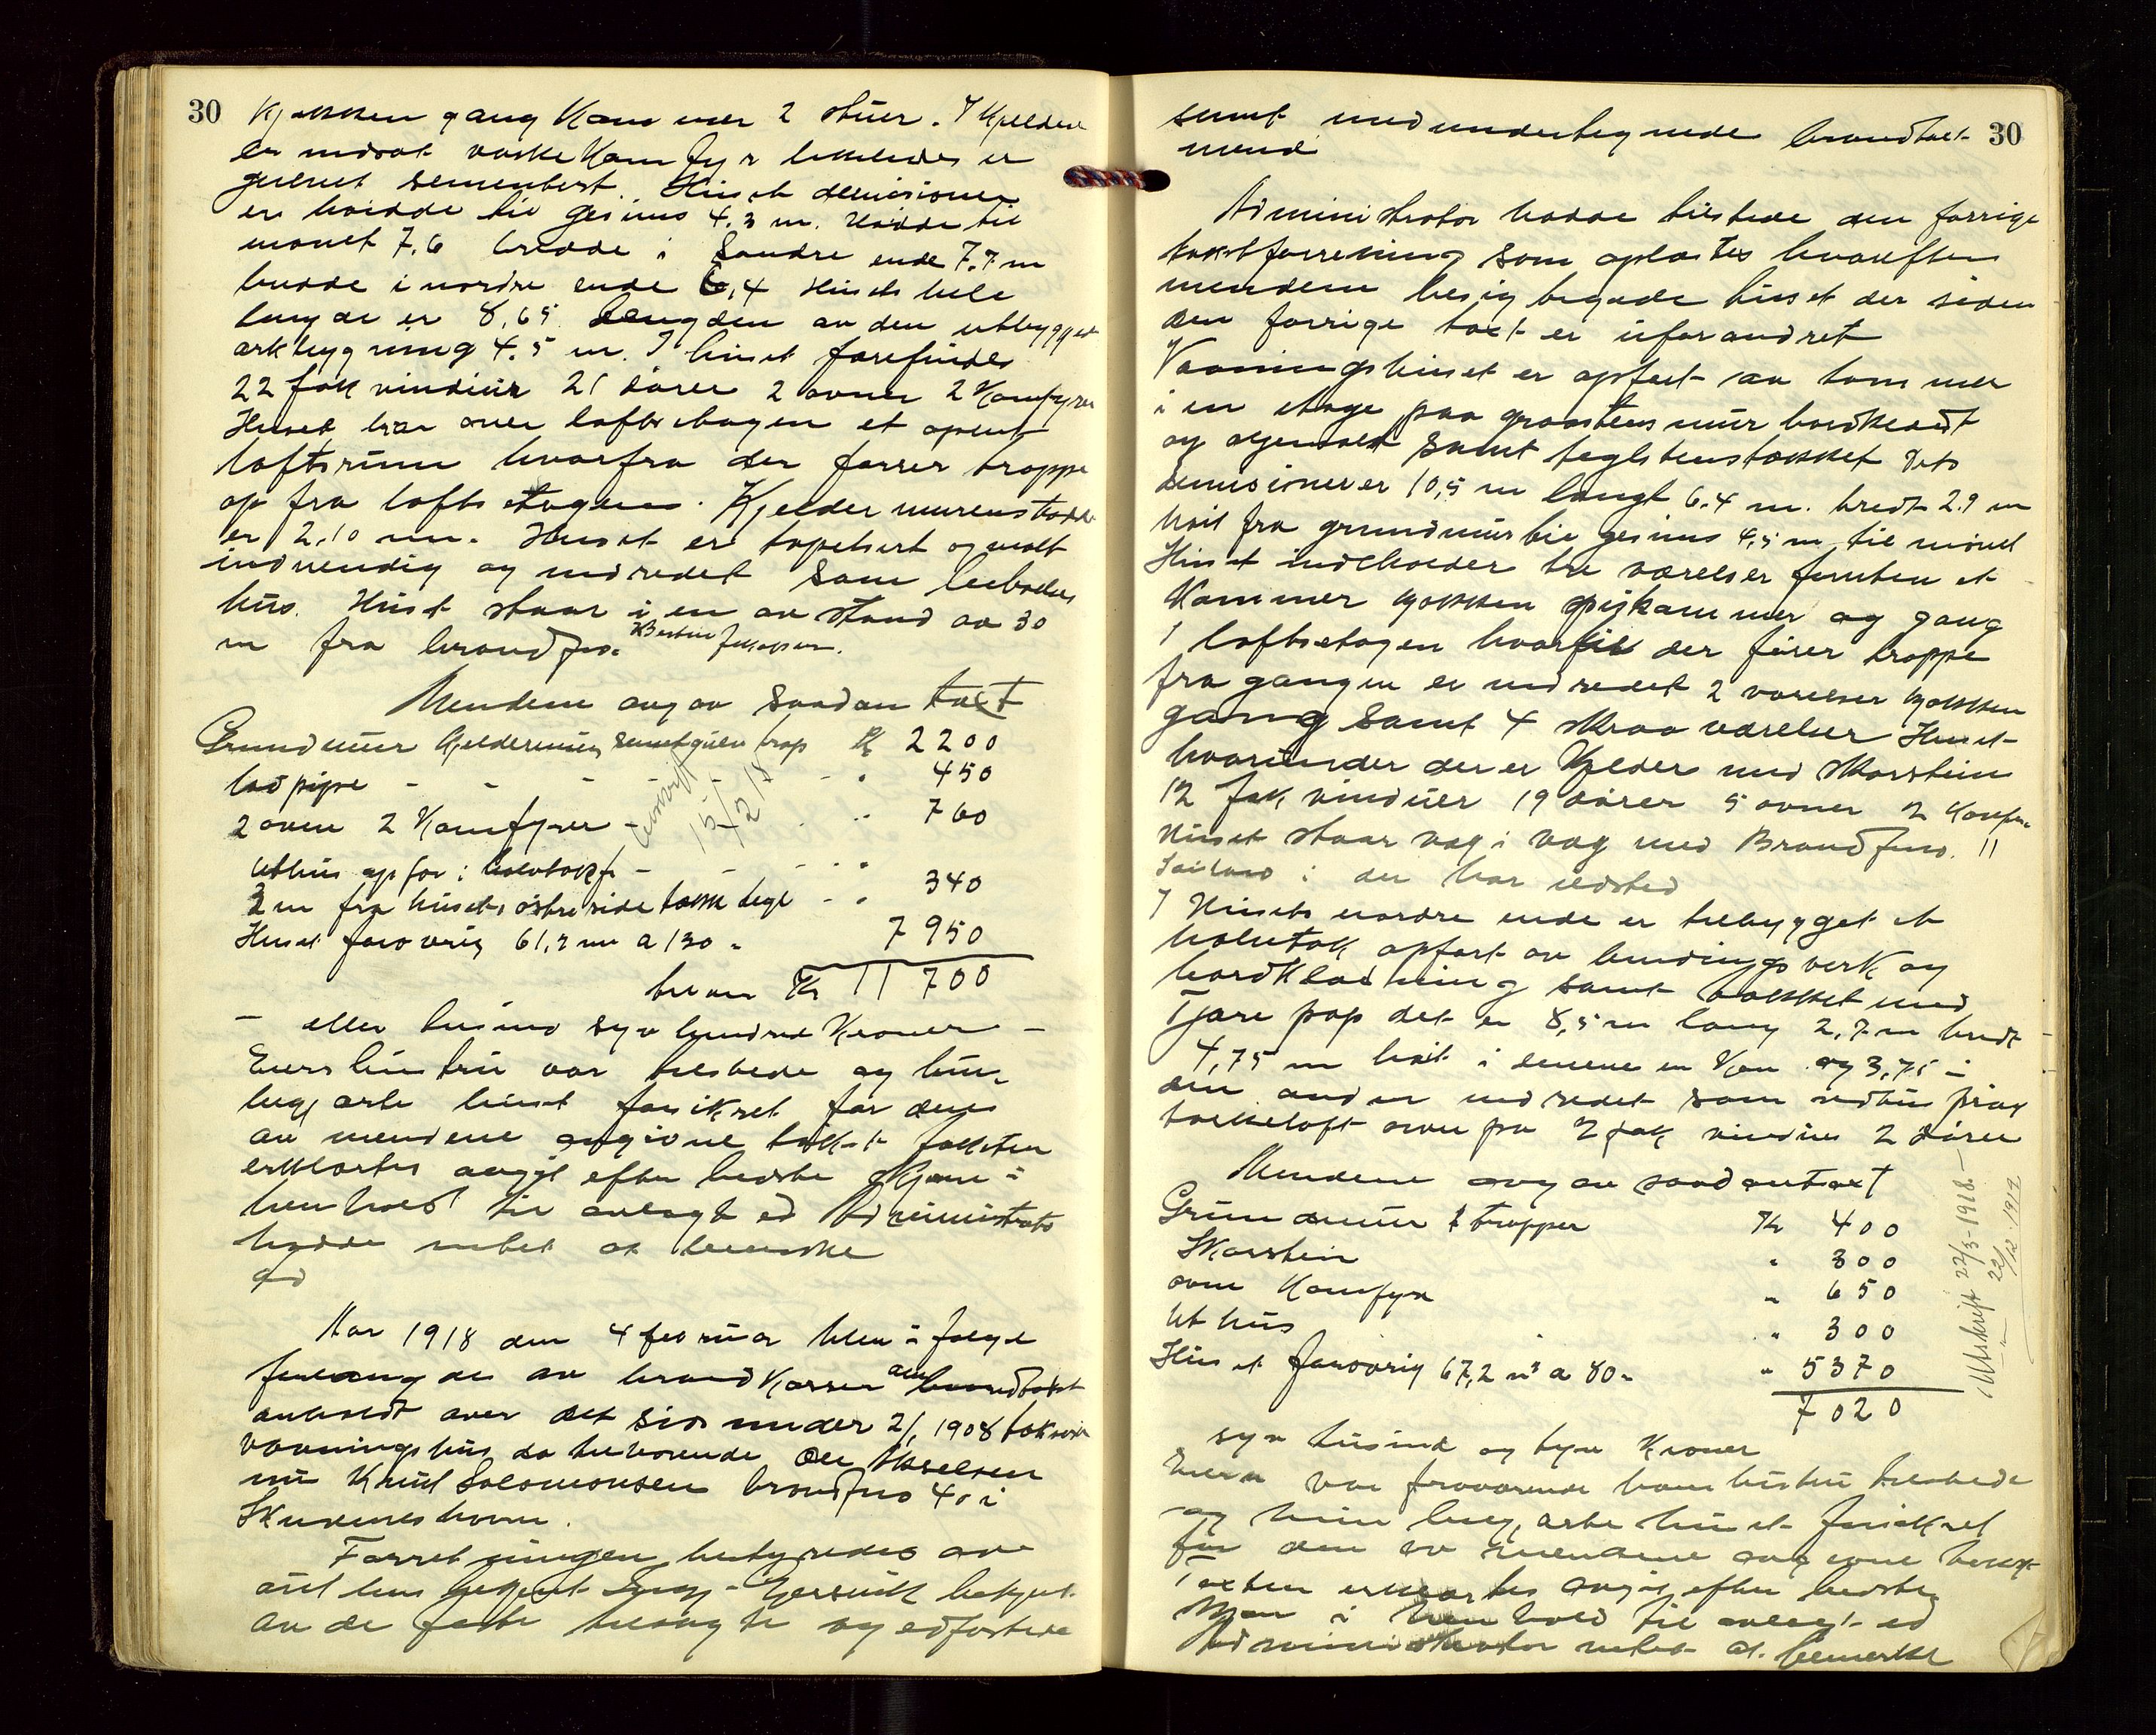 30
Kjøkken gang Kammer 2 stuer. I Kjelderen
er indsat vaskekamfyr likeledes er
gulvet sementert. Husets demisioner
er høidde til gesims 4,3 m. Høidde til
mønet 7,6 bredde i Søndre ende 7,7 m
bredde i nordre ende 6,4 Husets hele
længde er 8,65 Lengden av den utbyggede
arkbygning 4,5 m. I huset forefindes
22 fak vinduer 21 dører 2 ovner 2 Kamfyrer
Huset har over loftsetagen et opent
loftsrum hvorfra der fører trappe
op fra loftsetagen. Kjeldermurens høide
er 2,10 m. Huset er tapetsert og malt
indvendig og indredet som beboelses
hus. Huset staar i en avstand av 30
m fra brandfno.
Mendene avgav saadan taxt
Grundmur Kjeldermur sementgulv trap Kr 2200
Ildpipe - - - - " 450
2 ovne 2 Kamfyrer - " 760
Uthus opfør i halvtakf - - "
2 m fra husets østre side tækk tegl - " 340
Huset forøvrig 61,2 m a 130 - 7950
tilsam Kr 11 700
- elleve tusind syv hundred Kroner -
Eiers hustru var tilstede og hun
begjærte huset forsikret for den
av mendene avgivne takst taksten
erklærtes avgit efter bedste skjøn i
henhold til avlagt ed Administrator
hadde intet at bemerke
Utskrift
15/2 18
Aar 1918 den 4 februar blev i følge
forlangende av brandkassen
avholdt over det sidst under 2/1 1908 takserte
vaaningshus da tilhørende Ole Akselsen
nu Knut Solomonsen brandfno 40 i
Skudeneshavn.
Forretningen bestyredes av
av de faste tilsagte og edfæstede
30
samt medundertegnede brandtakst
mend
Administrator hadde tilstede den forrige
takstforretning som oplæstes hvorefter
mendene besigtigede huset der siden
den forrige taxt er uforandret
Vaaningshuset er opført av tømmer
i en etage paa graastensmur bordklædt
og oljemalt samt teglstenstækket Dets
demisioner er 10,5 m langt 6,4 m. bredt 2,9 m
høit fra grundmur til gesims 4,5 m til mønet
Huset indeholder tre værelser foruten et
Kammer kjøkken spiskammer og gang
I loftsetagen hvortil der fører trappe
fra gangen er indredet 2 værelser kjøkken
gang samt 4 skraaværelser Huset
hvorunder der er Kjelder med skorstein
12 fak vinduer 19 dører 5 ovner 2 Kamfyr
Huset staar væg i væg med Brandfno. 11
i der har ildsted
I Husets nordre ende er tilbygget et
halvtak opført av bindingsverk og
bordklædning samt tækket med
Tjære pap det er 8,5 m lang 2,7 m bredt
4,75 m høit i denene en Kan og 3,75 i
den anden indredet som
tørkeloft ovenpaa 2 fak vinduer 2 dører
Mendene avgav saadan taxt
Grundmur & trapper Kr 400
Skorstein " 300
ovne Kamfyr " 650
Uthus " 300
Huset forøvrig 67,2 m² a 80 - " 5370
7020
Utskrift 22/3-1918.-
" 22/12 1919
syv tusinde og tyve Kroner
Eieren var fraværende hans hustru tilstede
og hun begjærte huset forsikret
for den av mendene avgivne takst
Taxten erklærtes avgit efter bedste
skjøn i henhold til avlagt ed
Administrator intet at bemerke